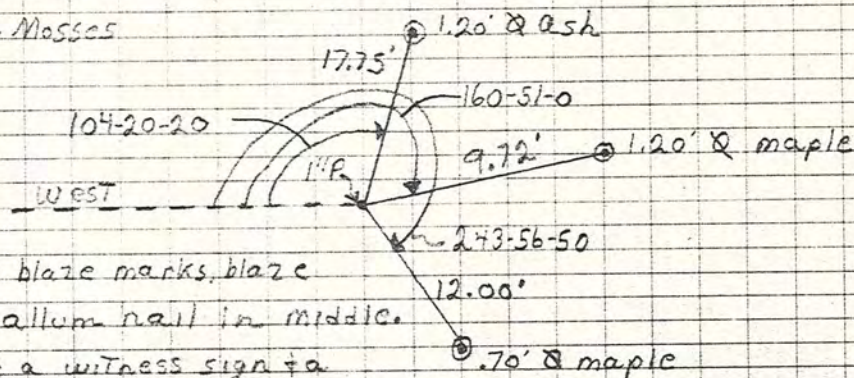 Mosses
1.20' Ø ash
17.75'
160-51-0
104-20-20
9.72'
1.20' Ø maple
1"P.
WEST
243-56-50
blaze marks, blaze
12.00'
allum nail in middle.
a witness sign + a
.70' Ø maple